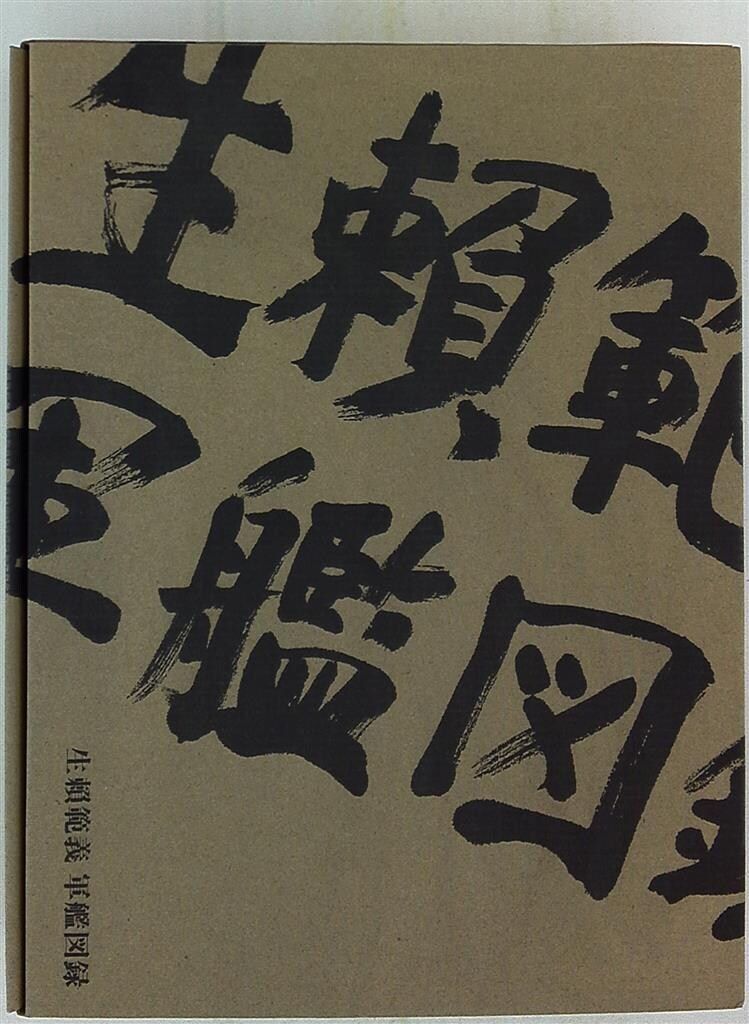 生賴範
軍艦図録
生賴範義 軍艦図録